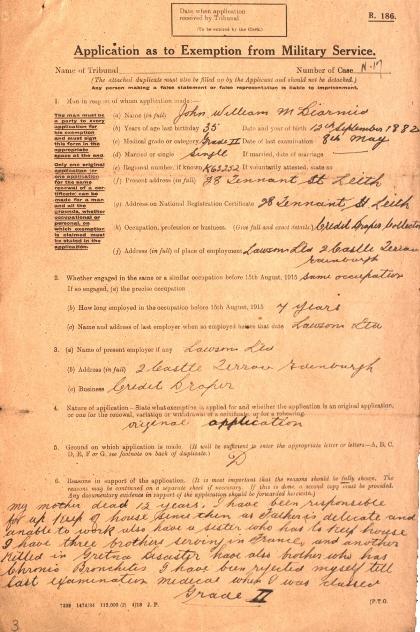 Date when application
received by Tribunal
(To be entered by the Clerk.)
R. 186.
Application as to Exemption from Military Service.
Name of Tribunal
Number of Case N.17
(The attached duplicate must also be filled up by the Applicant and should not be detached.)
Any person making a false statement or false representation is liable to imprisonment.
1. Man in respect of whom application made:—
The man must be
a party to every
application for
his exemption
and must sign
this form in the
appropriate
space at the end.
Only one original
application (or
one application
for the same
renewal of a cer-
tificate) can be
made for a man
and all the
grounds, whether
occupational or
personal, on
which exemption
is claimed must
be stated in the
application.
(a) Name (in full) John William McDiarmid
(b) Years of age last birthday 35 Date and year of birth 12th September 1882
(c) Medical grade or category Grade II Date of last examination 8th May
(d) Married or single Single If married, date of marriage
(e) Regional number, if known K63252 If voluntarily attested, state so
(f) Present address (in full) 28 Tennant St Leith
(g) Address on National Registration Certificate 28 Tennant St Leith
(h) Occupation, profession or business. (Give full and exact details) Credit Draper Collector
(j) Address (in full) of place of employment Lawsons Ltd 2 Castle Terrace
Edinburgh
2. Whether engaged in the same or a similar occupation before 15th August, 1915 same occupation
If so engaged, (a) the precise occupation
(b) How long employed in the occupation before 15th August, 1915 7 years
(c) Name and address of last employer when so employed before that date Lawsons Ltd
3. (a) Name of present employer if any Lawsons Ltd
(b) Address (in full) 2 Castle Terrace Edinburgh
(c) Business Credit Draper
4. Nature of application—State what exemption is applied for and whether the application is an original application,
or one for the renewal, variation or withdrawal of a certificate, or for a rehearing.
original application
5. Ground on which application is made. (It will be sufficient to enter the appropriate letter or letters—A, B, C,
D, E, F or G, see footnote on back of duplicate.)
D
6. Reasons in support of the application. (It is most important that the reasons should be fully shown. The
reasons may be continued on a separate sheet if necessary. If this is done, a second copy must be provided.
Any documentary evidence in support of the application should be forwarded herewith.)
my mother dead 12 years, I have been responsible
for up keep of house since then as Father's delicate and
unable to work also have a sister who has to keep house
I have three brothers serving in France, and another
killed in Gretna Disaster have also brother who has
Chronic Bronchitis I have been rejected myself till
last examination medical when I was classed
Grade II
7338 1474/84 112,000 (2) 4/18 J. P.
(P.T.O.
3